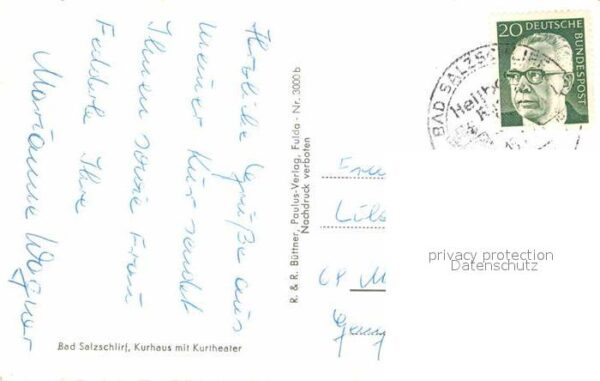 Herzliche Grüße aus
meiner Kur sendet
Ihnen sowie Frau
Fedderke Ihre
Marianne Wagner
Bad Salzschlirf, Kurhaus mit Kurtheater
R. & R. Büttner, Paulus-Verlag, Fulda - Nr. 3000 b
Nachdruck verboten
20
DEUTSCHE
BUNDESPOST
BAD SALZSCHLIRF
Heilb
Frau
privacy protection
Datenschutz